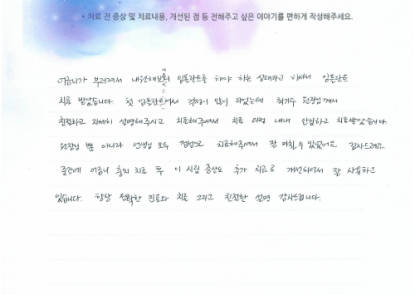 * 치료 전 증상 및 치료내용, 개선된 점 등 전해주고 싶은 이야기를 편하게 작성해주세요.
어금니가 부러져서 내원해보니 임플란트를 해야 하는 상태라고 하셔서 임플란트
치료 받았습니다. 첫 임플란트여서 걱정이 많이 되었는데 최기수 원장님께서
친절하고 자세히 설명해주시고 치료해주셔서 치료 과정 내내 안심하고 치료받았습니다.
원장님 뿐 아니라 선생님 모두 친절하고 치료해주셔서 잘 마칠 수 있었어요. 감사드려요.
중간에 어금니 충치 치료 후 이 시림 증상도 추가 치료로 개선되어서 잘 사용하고
있습니다. 항상 정확한 진료와 치료 그리고 친절한 설명 감사드립니다.